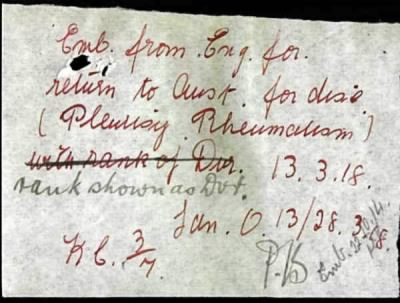 Emb. from Eng. for.
return to Aust. for disc.
( Pleurisy Rheumatism )
with rank of Dvr. 13.3.18.
rank shown as Dvr.
Lan. O. 13/28.3.18.
K6. 3/7
P.B
Emb.